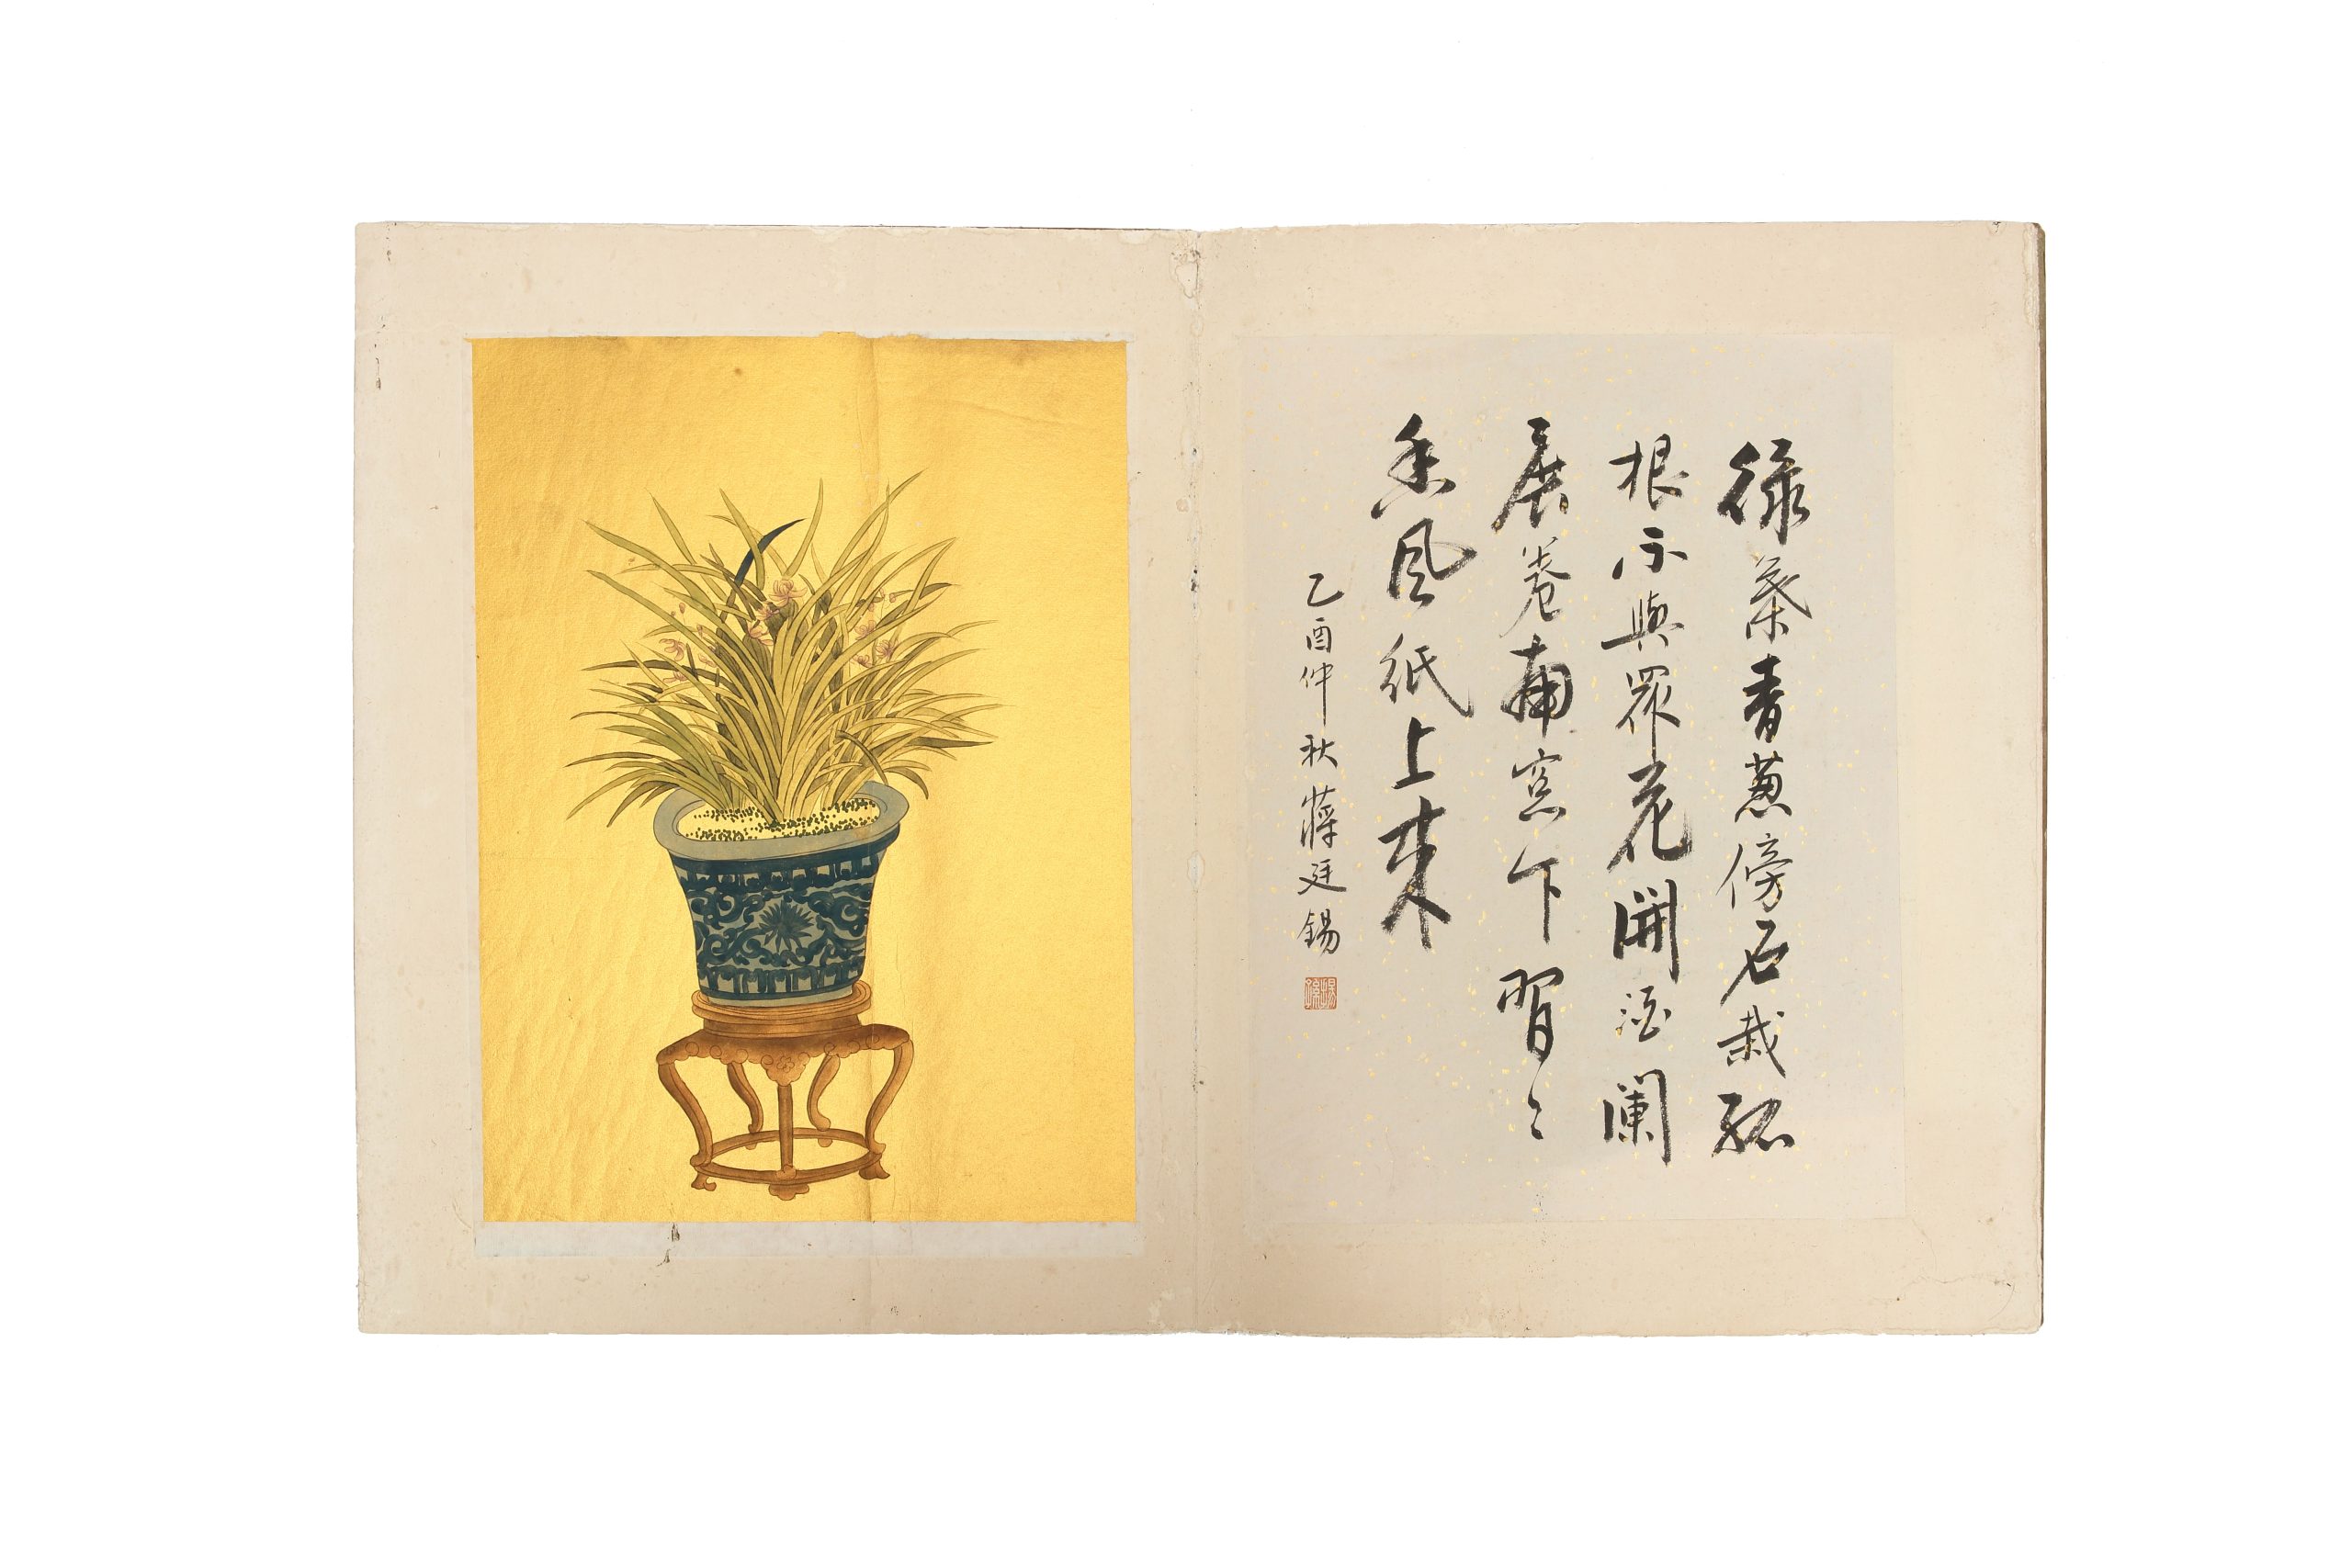 綠葉青蔥傍石栽孤
根不與眾花開酒闌
展卷南窓下習〻
香風紙上来
乙酉仲秋蔣廷錫